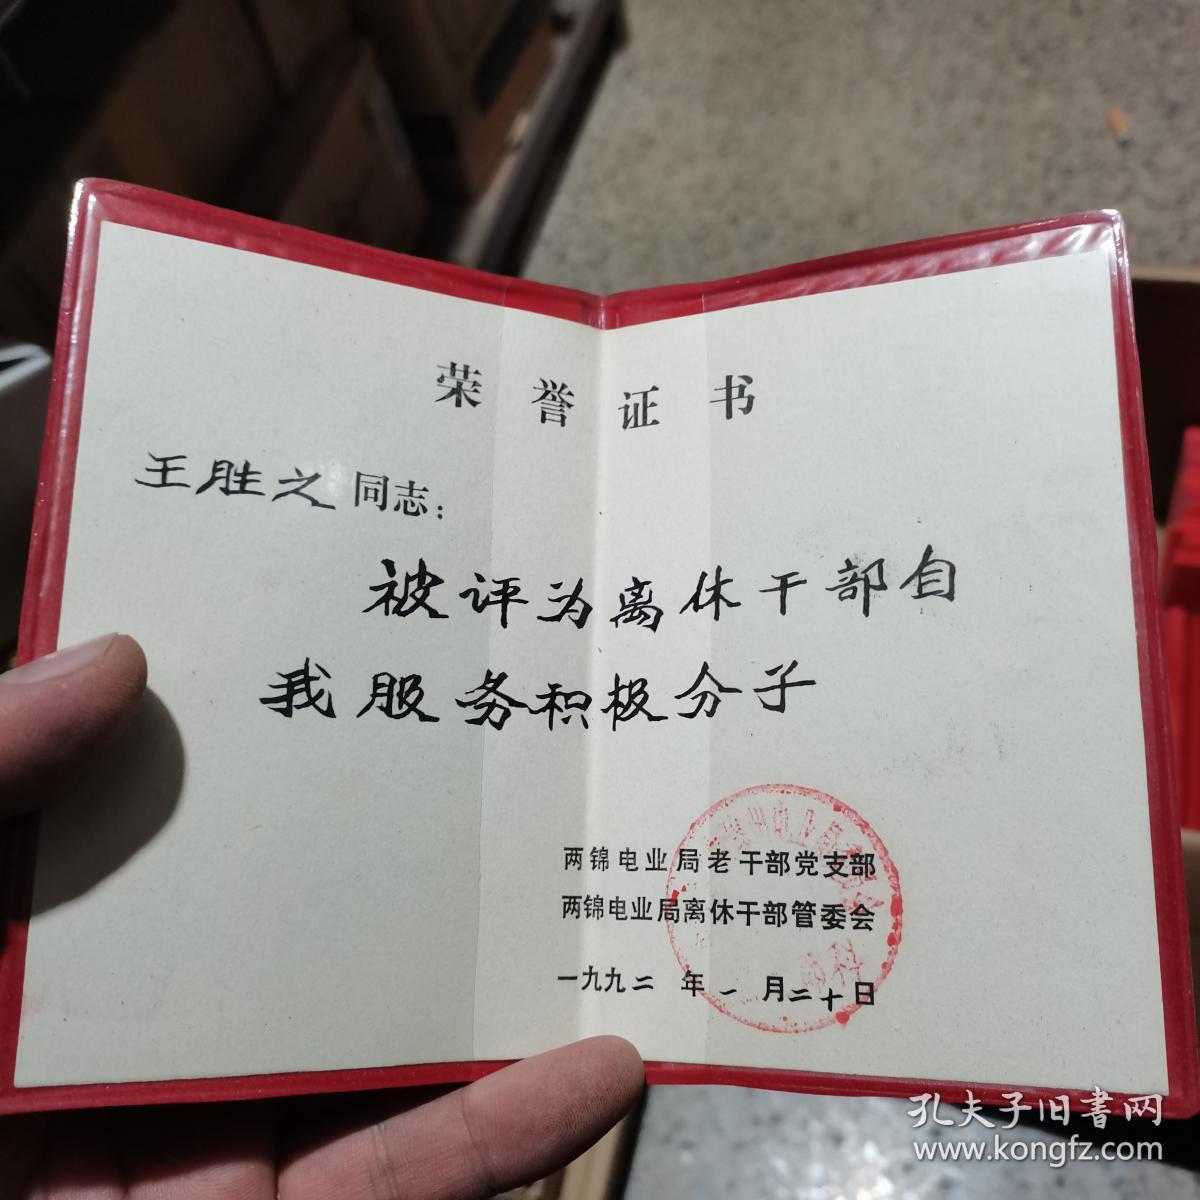 荣誉证书
王胜之同志：
被评为离休干部自
我服务积极分子
两锦电业局老干部党支部
两锦电业局离休干部管委会
一九九二年一月二十日
孔夫子旧书网
www.kongfz.com